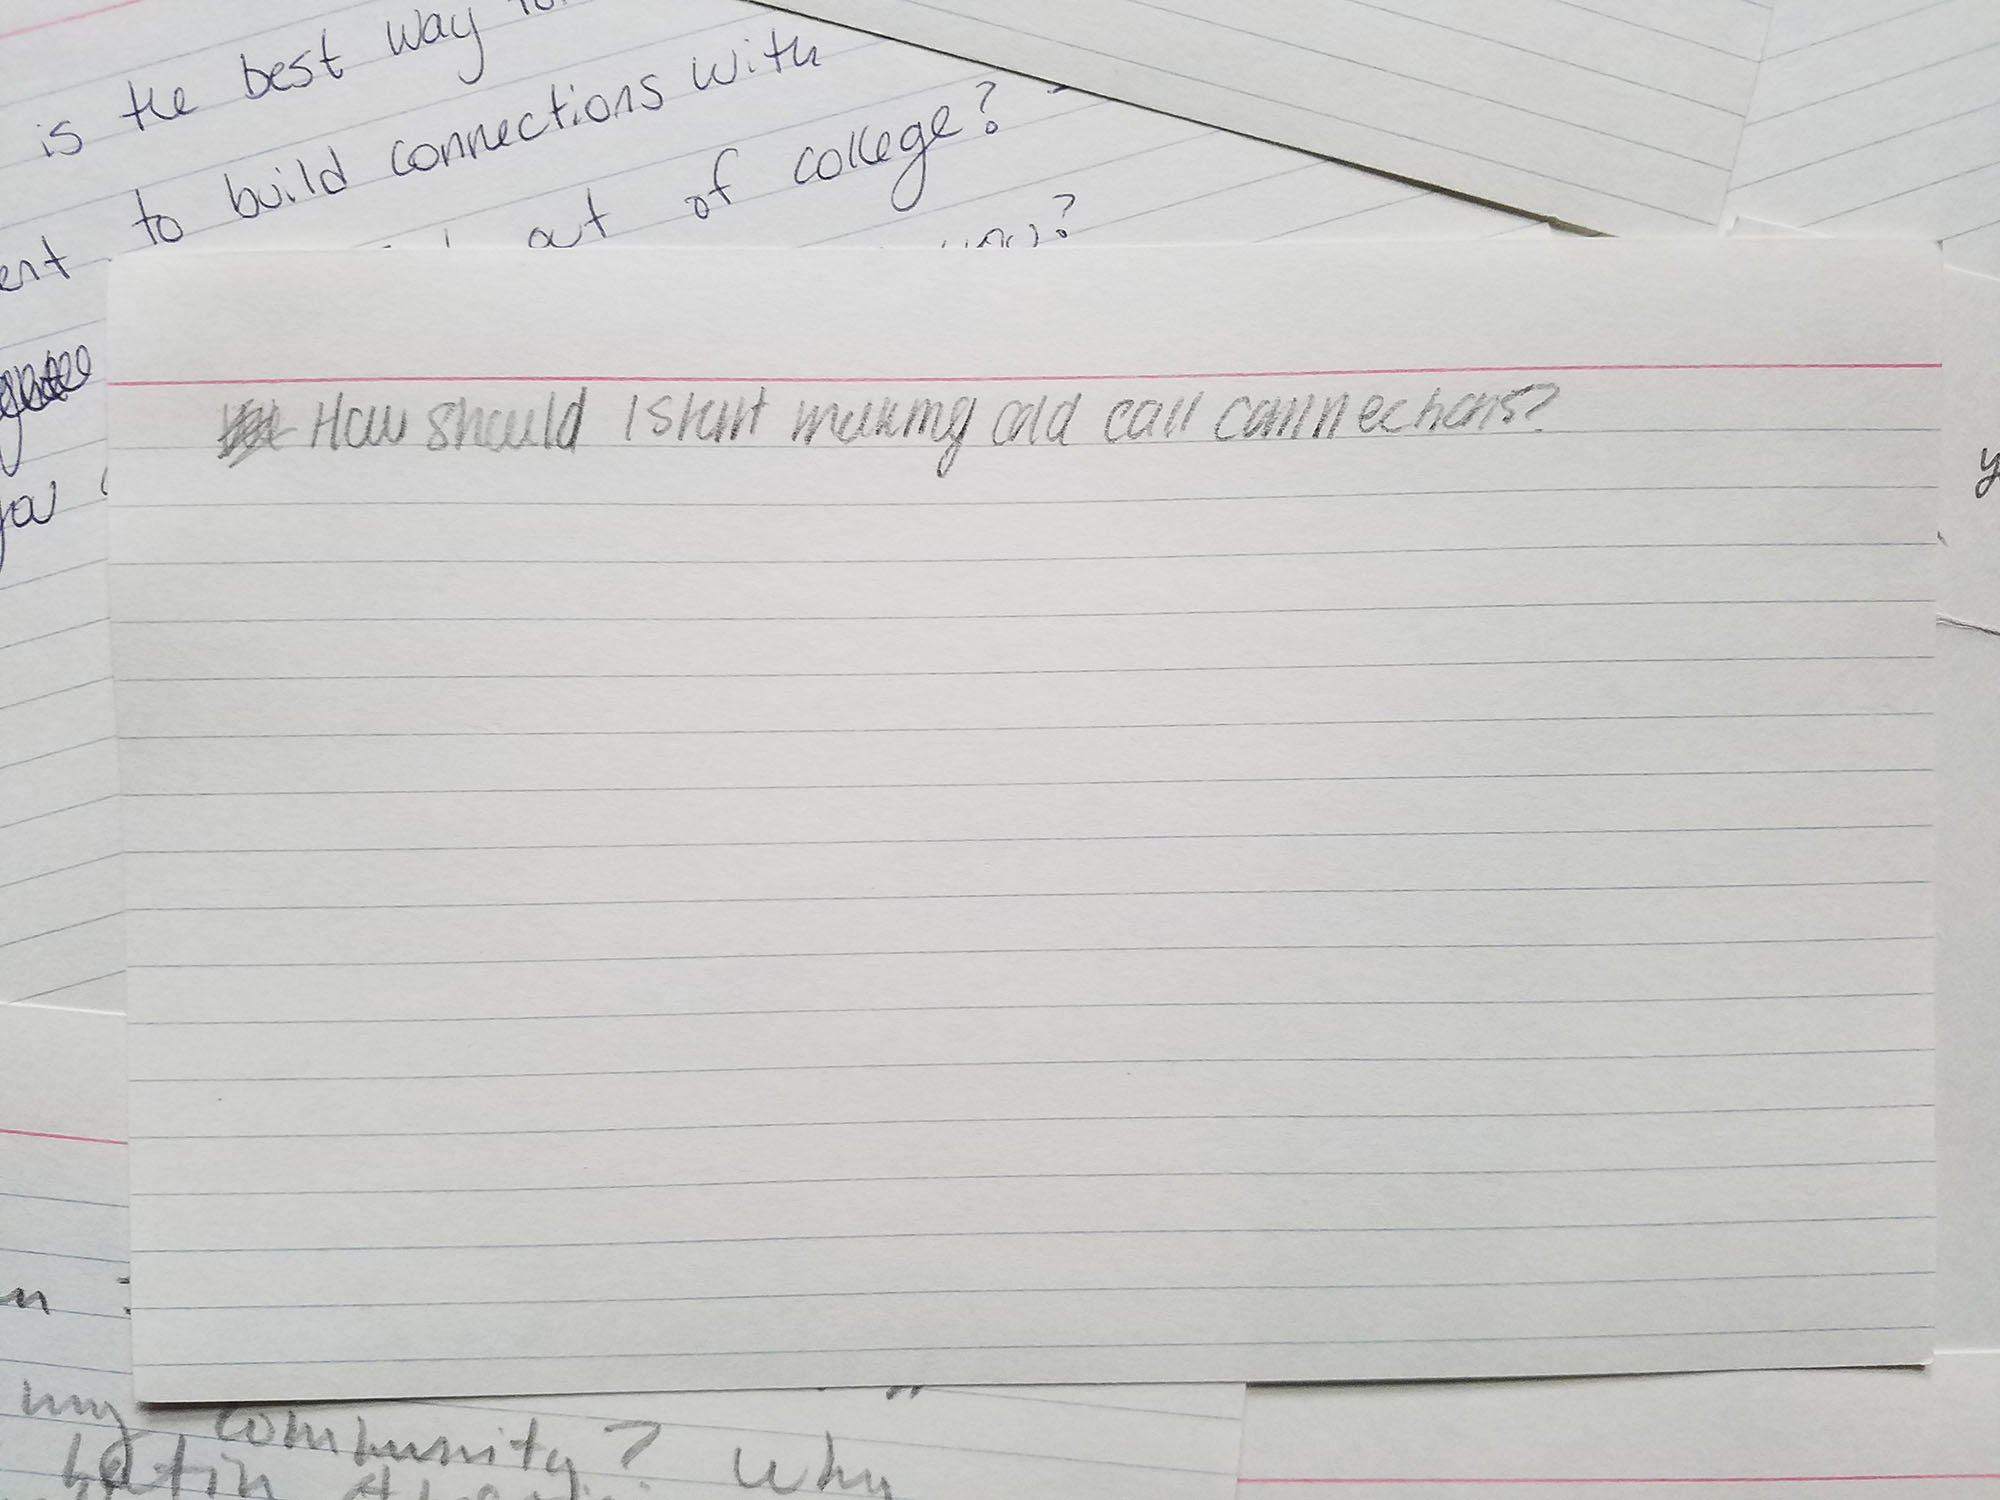 is the best way
to build connections with
ent
out of college?
you
How should I start making cold call connections?
y
my community? Why
Latin